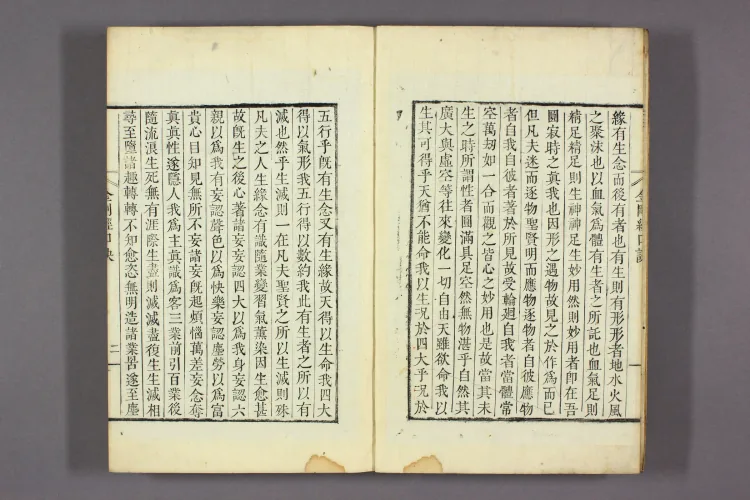 緣有生念而後有者也有生則有形形者地水火風
之聚沫也以血氣爲體有生者之所託也血氣足則
精足精足則生神神足生妙用然則妙用者即在吾
圓寂時之眞我也因形之遇物故見之於作爲而已
但凡夫迷而逐物聖賢明而應物逐物者自彼應物
者自我自彼者著於所見故受輪廻自我者當體常
空萬刼如一合而觀之皆心之妙用也是故當其未
生之時所謂性者圓滿具足空然無物湛乎自然其
廣大與虛空等往來變化一切自由天雖欲命我以
生其可得乎天猶不能命我以生况於四大乎况於
五行乎旣有生念又有生緣故天得以生命我四大
得以氣形我五行得以數約我此有生者之所以有
滅也然乎生滅則一在凡夫聖賢之所以生滅則殊
凡夫之人生緣念有識隨業變習氣薰染因生愈甚
故旣生之後心著諸妄妄認四大以爲我身妄認六
親以爲我有妄認聲色以爲快樂妄認塵勞以爲富
貴心目知見無所不妄諸妄旣起煩惱萬差妄念奪
眞眞性遂隱人我爲主眞識爲客三業前引百業後
隨流浪生死無有涯際生盡則滅滅盡復生生滅相
尋至墮諸趣轉轉不知愈恣無明造諸業苦遂至塵
金剛經口訣
二
金剛經口訣